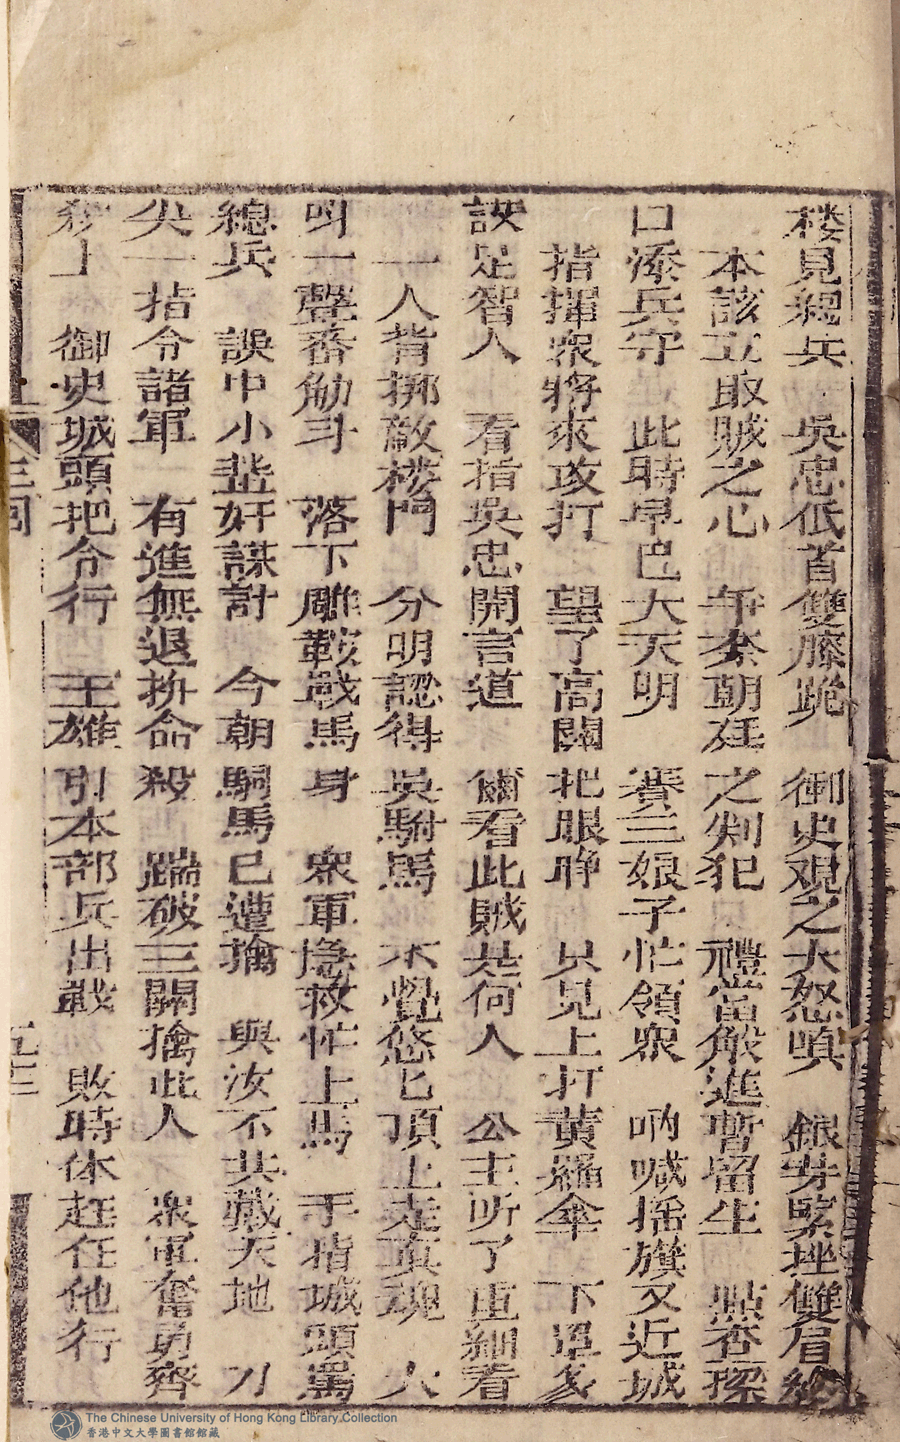 楼見總兵　吳忠低首雙膝跪　御史覌之大怒嗔　銀芽緊挫雙眉
本該立取賊之心　午奏朝廷之刿犯　禮當觧進暫留生　點查一探
口添兵守　此時早巳大天明　賽三娘子忙領衆　吶喊揺旗又近城
指揮衆將來攻打　望了高関把眼睁　只見上打黃羅傘　下罩
誤足智人　看指吳忠開言道　爾看此賊是何人　公主听了重細看
一人背挷敵楼門　分明認得吳駙馬　不覺悠匕頂上走真魂　大
叫一聲畨觔斗　落下雕鞍戰馬身　衆軍急救忙上馬　手指城頭罵
總兵　誤中小輩奸謀計　今朝駙馬已遭擒　與汝不共戴天地　刀
尖一指令諸軍　有進無退拚命殺　踹破三關擒此人　衆軍奮勇齊
上　御史城頭把令行　王雄引本部兵出戰　敗時休赶任他行
三囘
五十三
The Chinese University of Hong Kong Library Collection
香港中文大學圖書館館藏